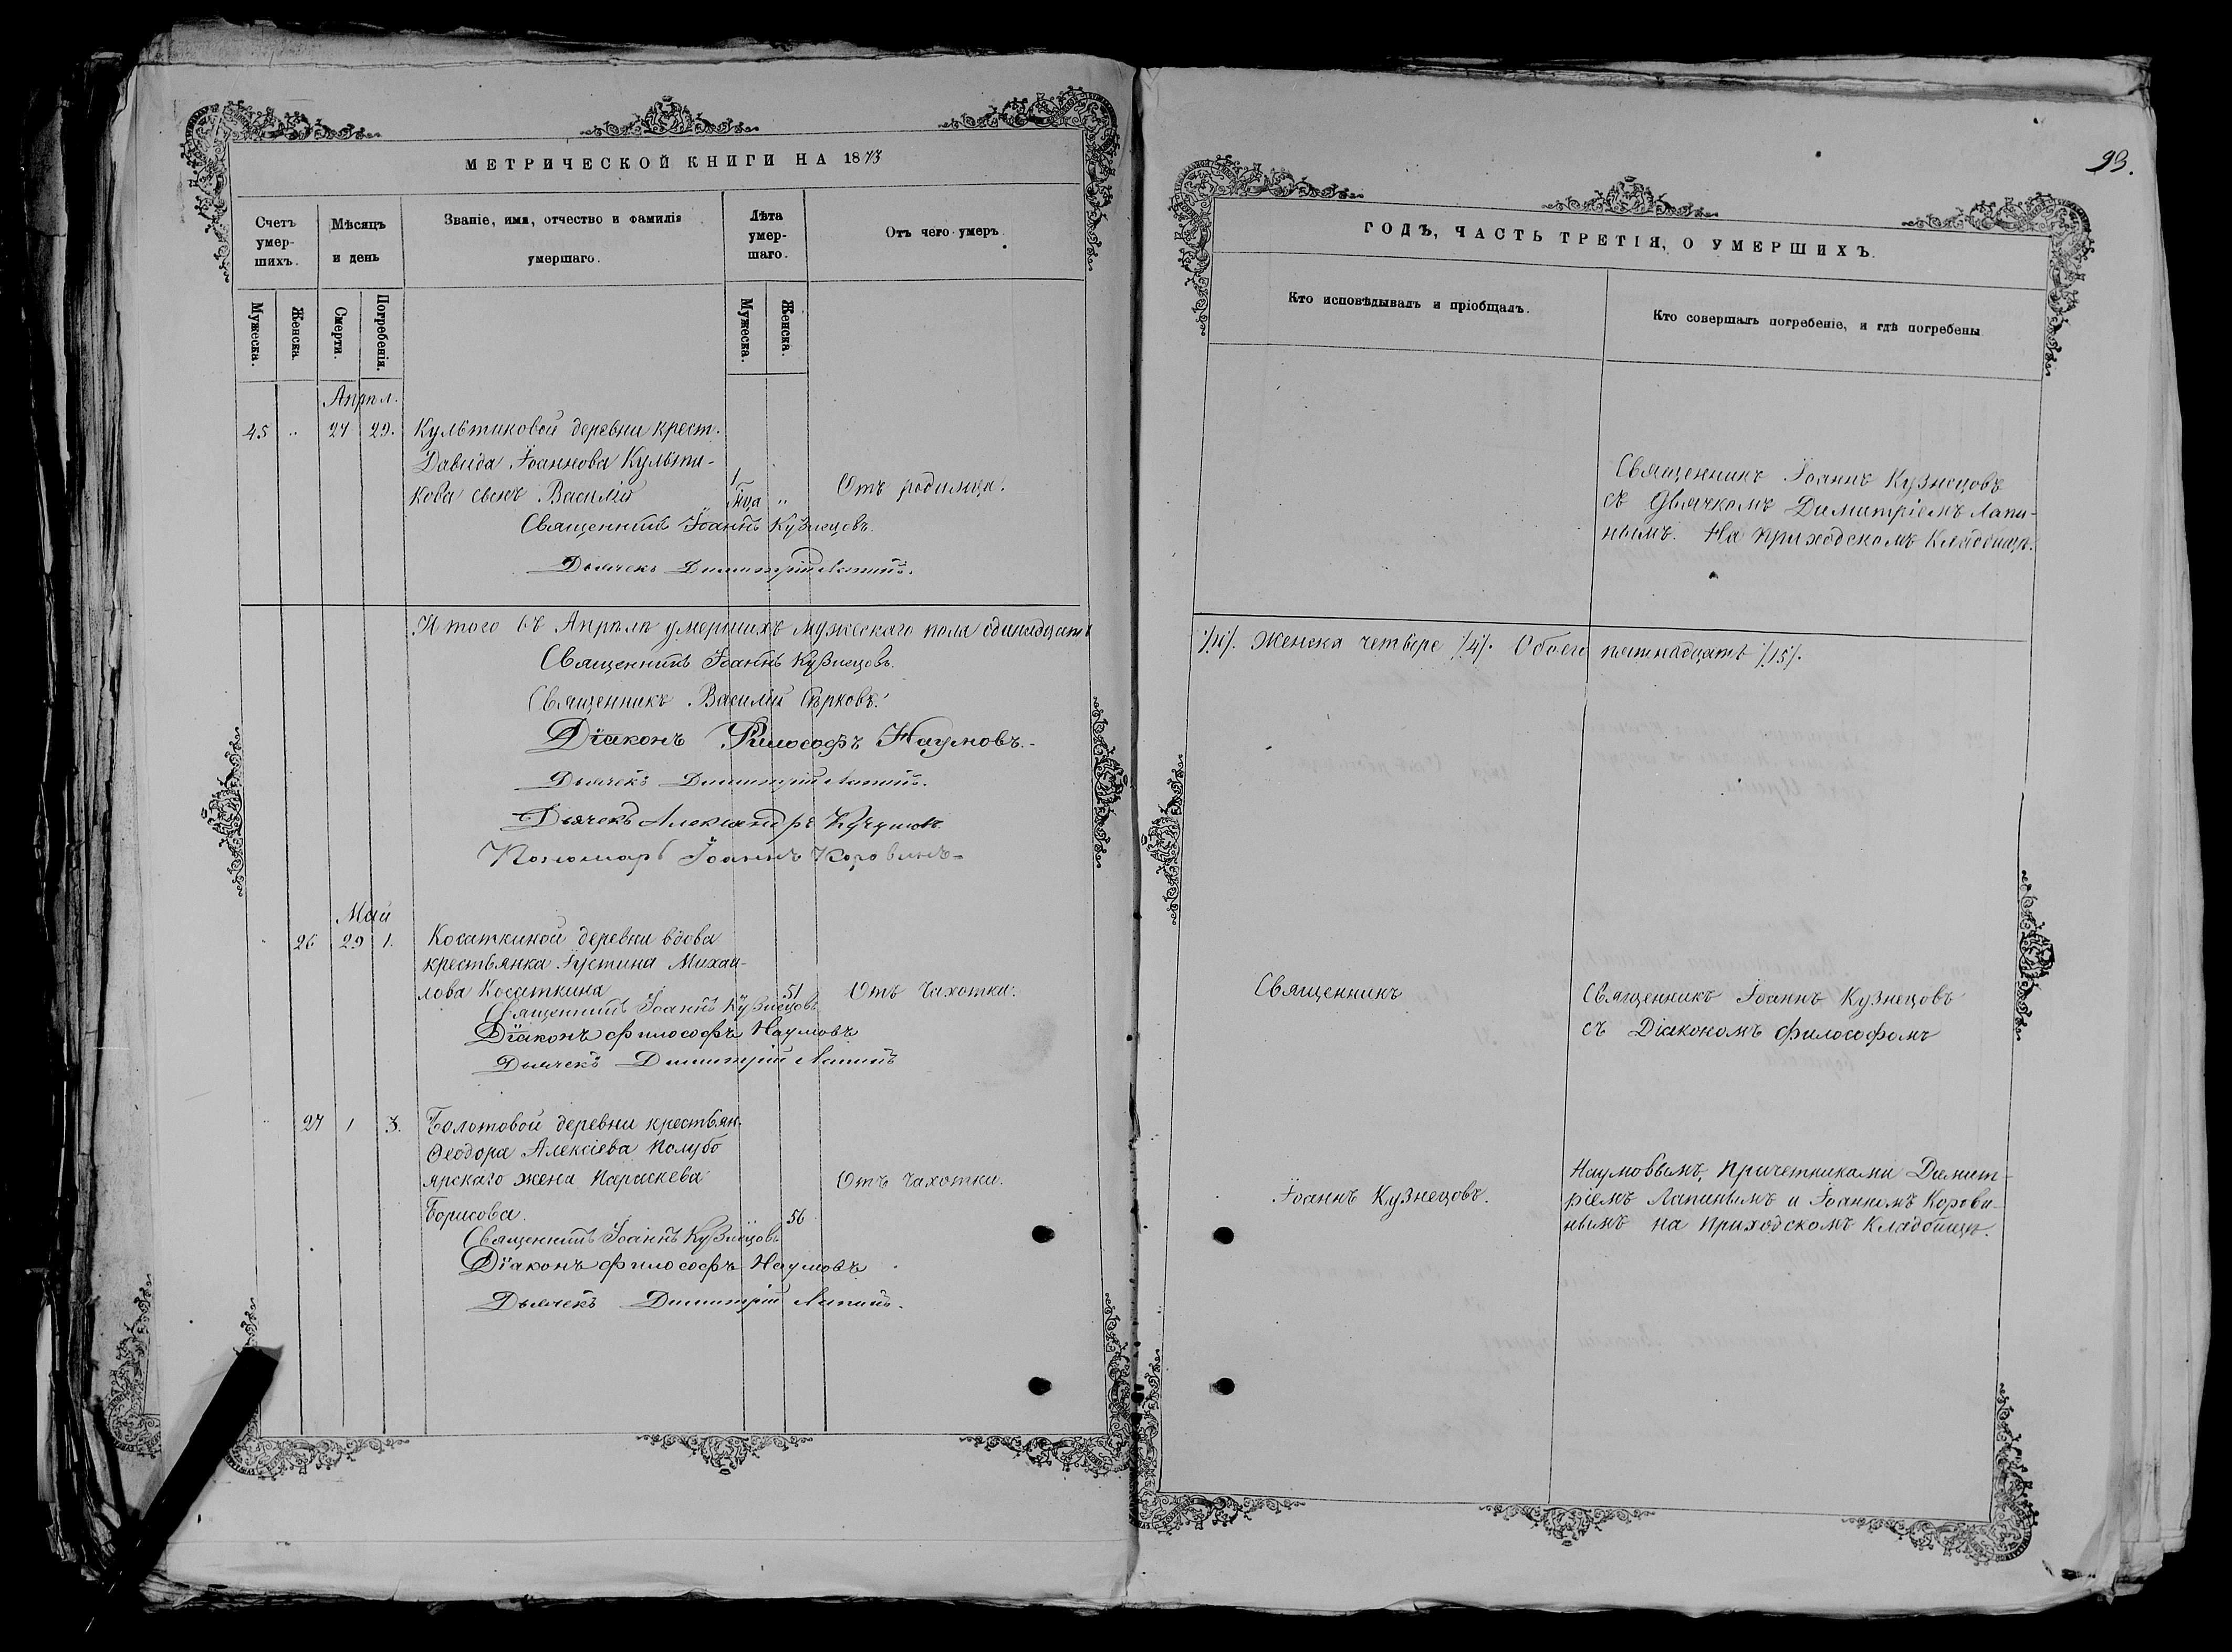 МЕТРИЧЕСКОЙ КНИГИ НА 1873
Счетъ умер-шихъ.
Мѣсяцъ и день
Званіе, имя, отчество и фамилія умершаго.
Лѣта умер-шаго.
Отъ чего умеръ.
Мужеска.
Женска.
Смерти.
Погребенія.
Мужеска.
Женска.
Апрѣл.
45 „ 27 29. Культиковой деревни крест.
Давида Іоаннова Культи-
кова сынъ Василій
1
„ Отъ родимца.
Священникъ Іоаннъ Кузнецовъ.
Дьячекъ Димитрій Лапинъ.
Итого въ Апрѣлѣ умершихъ мужескаго пола одинадцать
Священникъ Іоаннъ Кузнецовъ.
Священникъ Василій
Діаконъ Философъ Наумовъ.
Дьячекъ Димитрій Лапинъ.
Дьячекъ Александръ
Пономарь Іоаннъ Коровинъ
Май
26 29 1. Косаткиной деревни вдова
крестьянка Іустина Михаи-
лова Косаткина 51 Отъ чахотки.
Священникъ Іоаннъ Кузнецовъ
Діаконъ Философъ Наумовъ
Дьячекъ Димитрій Лапинъ
27 1 3. Болотовой деревни крестьян.
Ѳеодора Алексіева Полубо
ярскаго жена Параскева Отъ чахотки.
Борисова. 56
Священникъ Іоаннъ Кузнецовъ
Діаконъ Философъ Наумовъ
Дьячекъ Димитрій Лапинъ.
93.
ГОДЪ, ЧАСТЬ ТРЕТІЯ, О УМЕРШИХЪ.
Кто исповѣдывалъ и пріобщалъ.
Кто совершалъ погребеніе, и гдѣ погребены
Священникъ Іоаннъ Кузнецовъ
съ Дьячкомъ Димитріемъ Лапи-
нымъ. На приходскомъ кладбищѣ.
/11/. Женска четвере /4/. Обоего пятнадцать /15/.
Священникъ
Священникъ Іоаннъ Кузнецовъ
съ Діакономъ Философомъ
Іоаннъ Кузнецовъ.
Наумовымъ, причетниками Димит-
ріемъ Лапинымъ и Іоанномъ Корови-
нымъ на приходскомъ кладбищѣ.